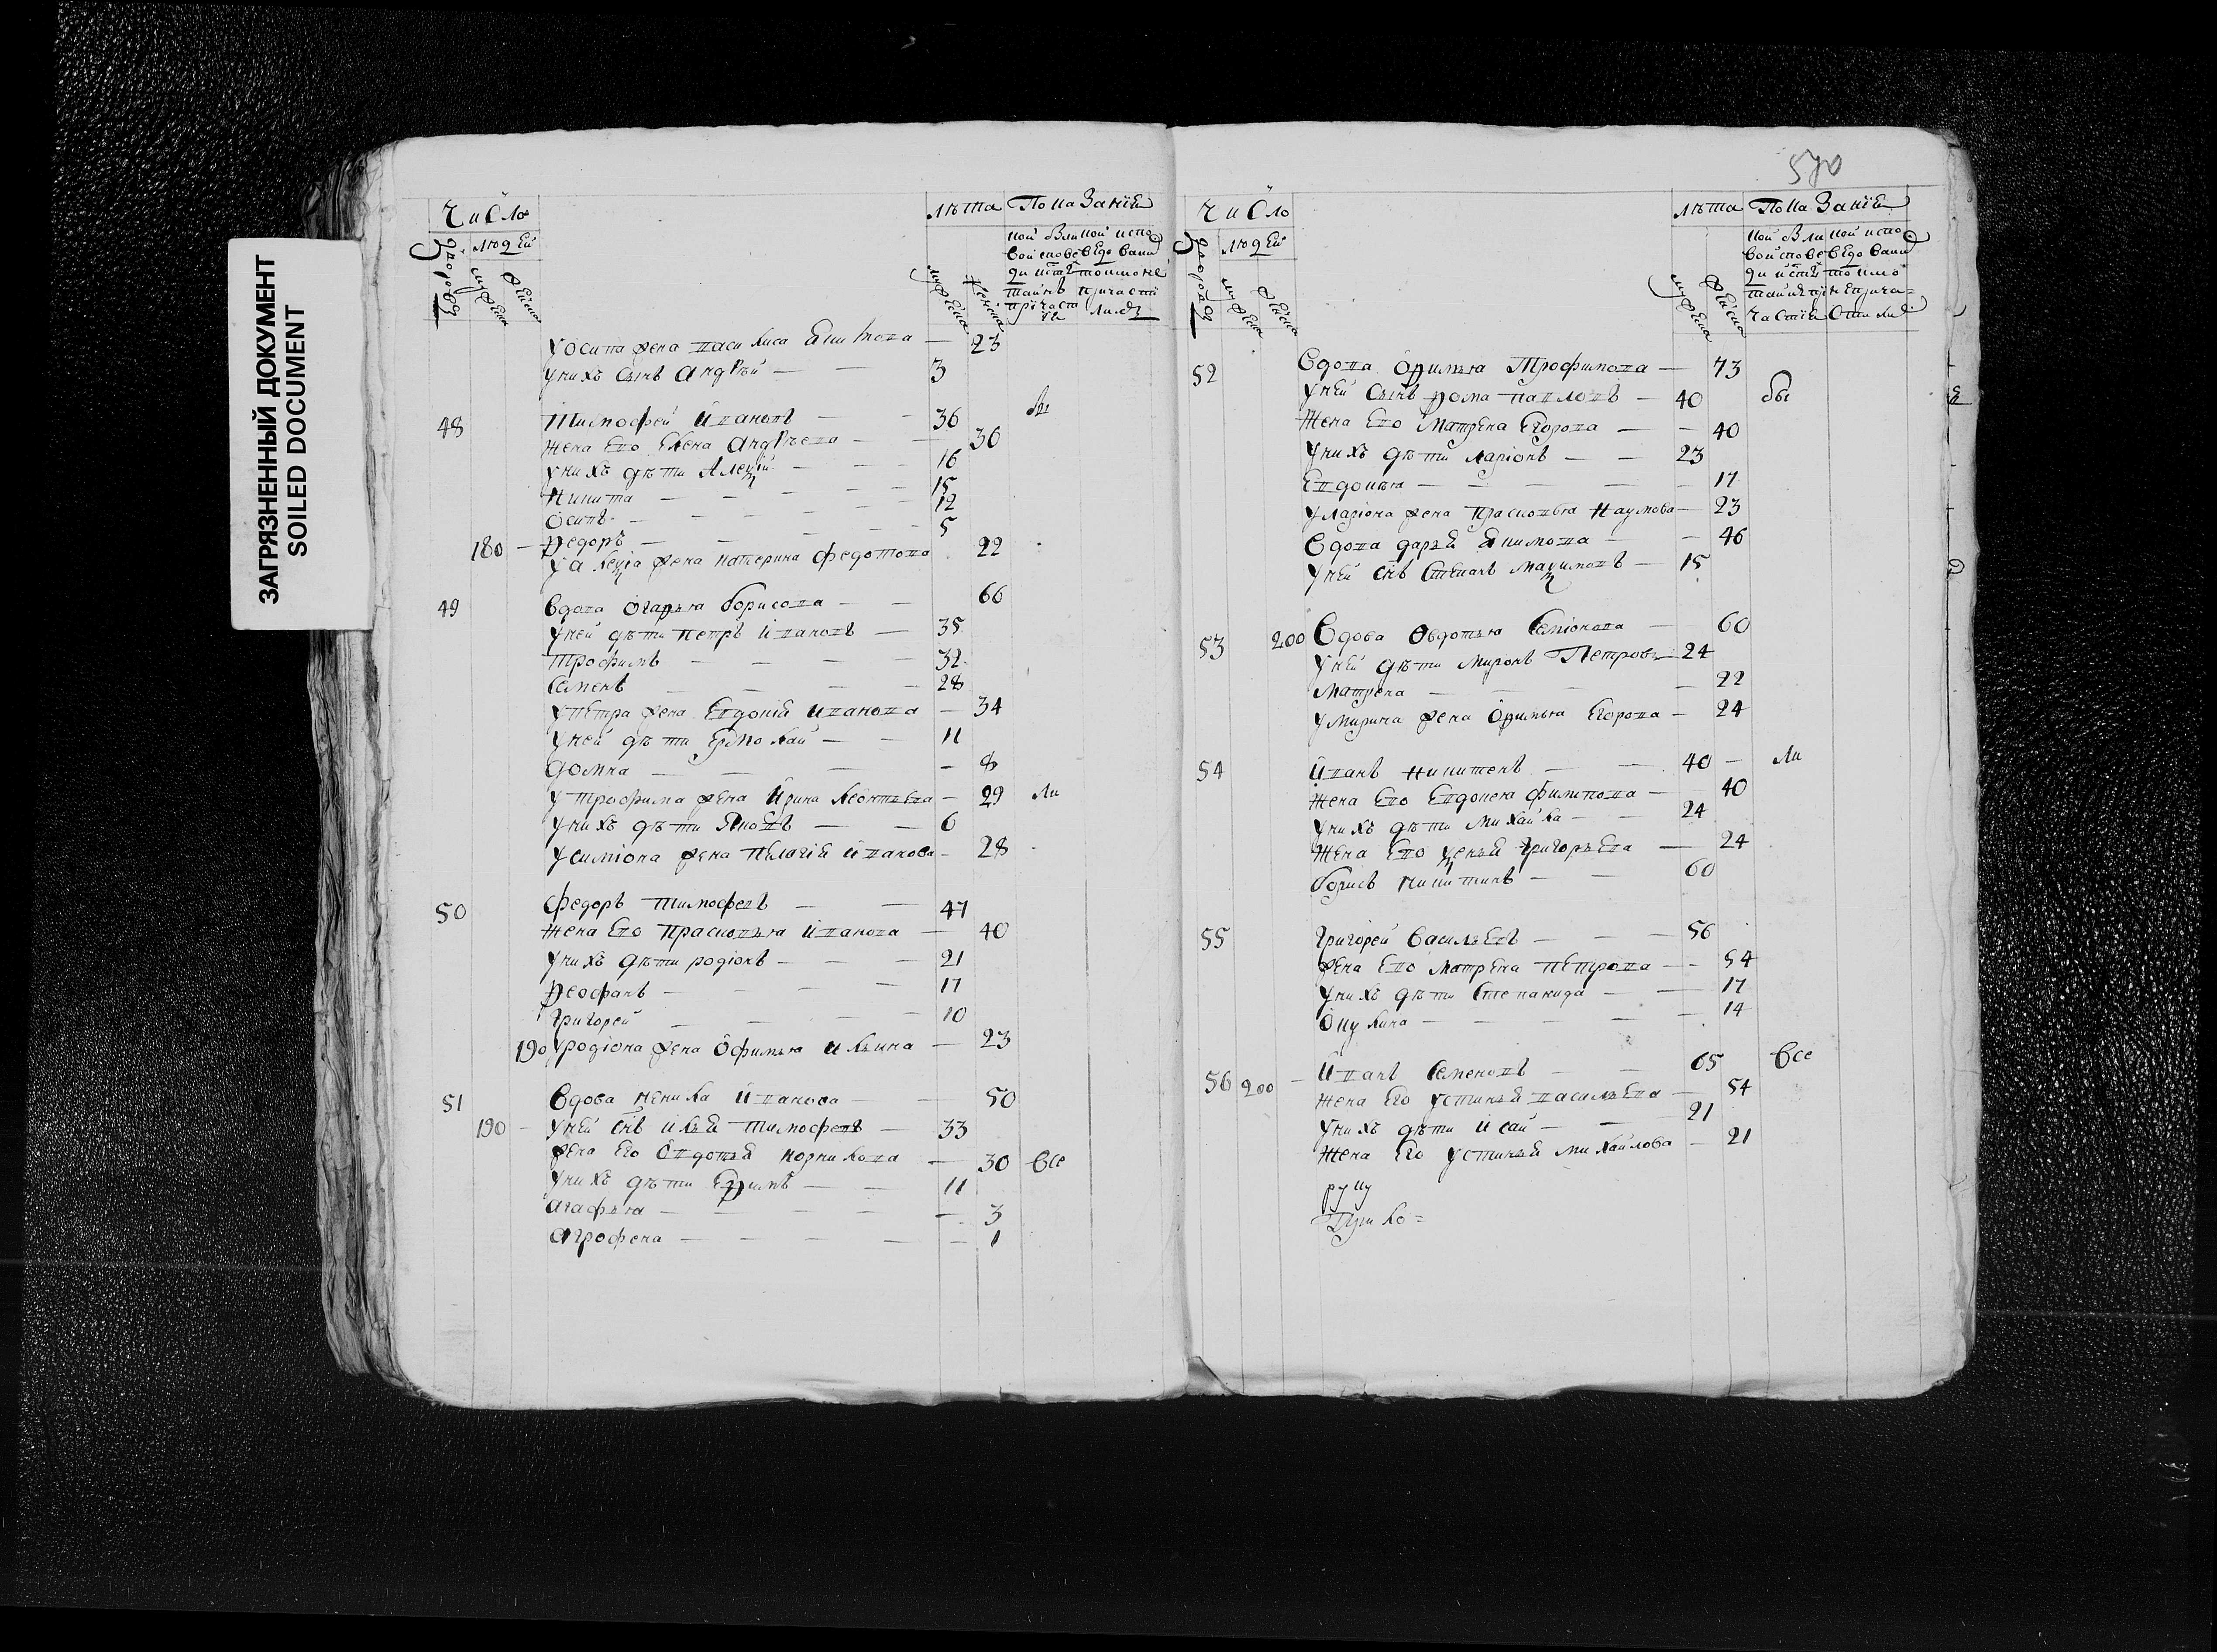 ЗАГРЯЗНЕННЫЙ ДОКУМЕНТ
SOILED DOCUMENT
Число
людей
лѣта Показаніе
дворовъ мужеска женска
мужеска женска
У Осипа жена Василиса 23
У нихъ сынъ Андрѣй 3
48 Тимофей Ивановъ 36
Жена его Елена Андрѣева 36
У нихъ дѣти Алеѯій 16
Никита 15
Осипъ 12
180 Ѳедоръ 5
У Алеѯія жена Катерина Федотова 22
49 Вдова Борисова 66
У ней дѣти Петръ Ивановъ 35
Трофимъ 32
Семенъ 28
У Петра жена Евдокія Иванова 34
У ней дѣти Ермолай 11
Домна 8
У Трофима жена Ирина Леонтьева 29 ли
У нихъ дѣти Яковъ 6
У Симіона жена Пелагія Иванова 28
50 Федоръ Тимофеевъ 47
Жена его Прасковья Иванова 40
У нихъ дѣти Родіонъ 21
Ѳеофанъ 17
Григорей 10
190 У Родіона жена Офимья Ильина 23
51 Вдова Иванова 50
190 У ней снъ Илья Тимофеевъ 33
Жена его Овдотья Корнилова 30 все
У нихъ дѣти Еѳимъ 11
Агафья 3
Агрофена 1
570
Число
людей
лѣта Показаніе
дворовъ мужеска женска
мужеска женска
52 Вдова Оѳимья Трофимова 73
У ней сынъ Ѳома Павловъ 40 бы
Жена его Матрена Егорова 40
У нихъ дѣти Ларіонъ 23
Евдокья 17
У Ларіона жена Прасковья Наумова 23
Вдова Дарья Якимова 46
У ней снъ Степанъ Маѯимовъ 15
53 200 Вдова Овдотья Семіонова 60
У ней дѣти Миронъ Петровъ 24
Матрена 22
У Мирона жена Оѳимья Егорова 24
54 Иванъ Никитенъ 40 ли
Жена его Евдокея Филипова 40
У нихъ дѣти Михайла 24
Жена его Ѯенья Григорьева 24
Борисъ Никитинъ 60
55 Григорей Васильевъ 56
Жена его Матрена Петрова 54
У нихъ дѣти Степанида 17
Окулина 14
56 200 Иванъ Семеновъ 65 все
Жена его Устинья Васильева 54
У нихъ дѣти Исай 21
Жена его Устинья Михайлова 21
руку
Прило=